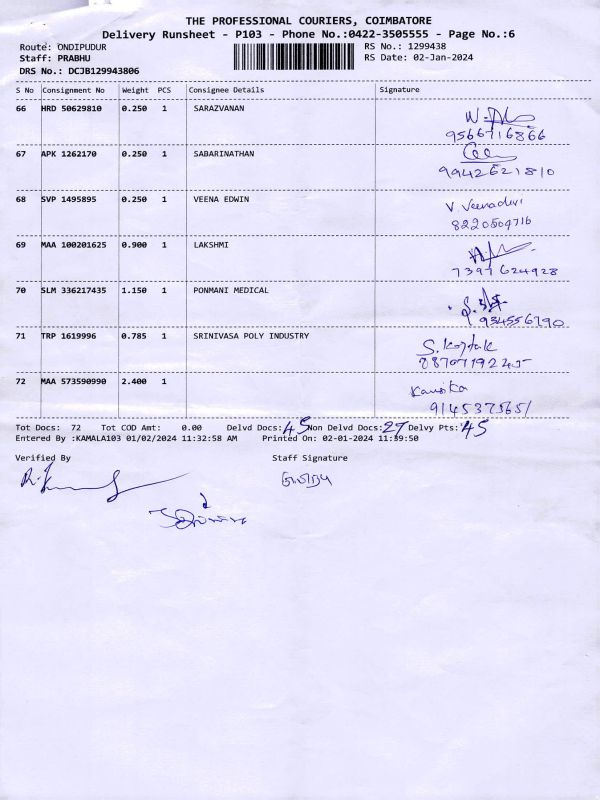 THE PROFESSIONAL COURIERS, COIMBATORE
Delivery Runsheet - P103 - Phone No.:0422-3505555 - Page No.:6
Route: ONDIPUDUR RS No.: 1299438
Staff: PRABHU RS Date: 02-Jan-2024
DRS No.: DCJB129943806
S No Consignment No Weight PCS Consignee Details Signature
66 HRD 50629810 0.250 1 SARAZVANAN
9566716866
67 APK 1262170 0.250 1 SABARINATHAN
9942621810
68 SVP 1495895 0.250 1 VEENA EDWIN V. Veenadevi
8220509716
69 MAA 100201625 0.900 1 LAKSHMI
7397624928
70 SLM 336217435 1.150 1 PONMANI MEDICAL
934556790
71 TRP 1619996 0.785 1 SRINIVASA POLY INDUSTRY
72 MAA 573590990 2.400 1 Kausika
9145375651
Tot Docs: 72 Tot COD Amt: 0.00 Delvd Docs: 45 Non Delvd Docs: 27 Delvy Pts: 45
Entered By :KAMALA103 01/02/2024 11:32:58 AM Printed On: 02-01-2024 11:39:50
Verified By Staff Signature